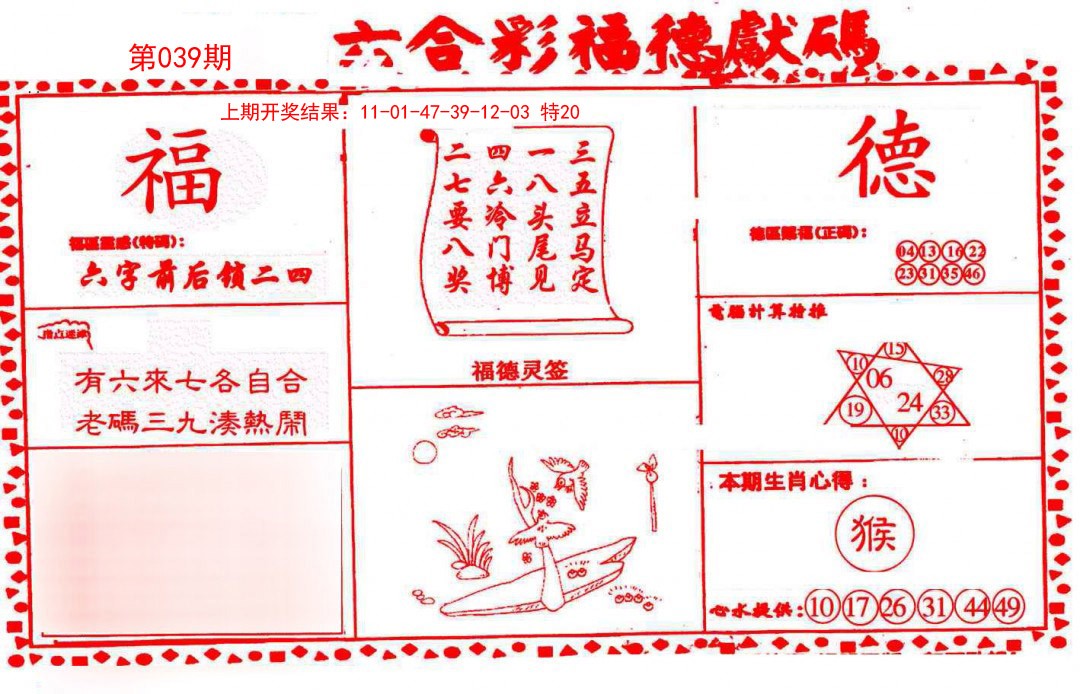 六合彩福德獻碼
第039期
上期开奖结果：11-01-47-39-12-03 特20
福
福區靈感(特碼)：
六字前后锁二四
有六來七各自合
老碼三九湊熱鬧
三五立马定
一八头尾见
四六冷门博
二七要八奖
福德灵签
德
04 13 16 22
23 31 35 46
電腦計算特推
15
10
06
28
19
24
33
10
本期生肖心得：
猴
心水提供：10 17 26 31 44 49